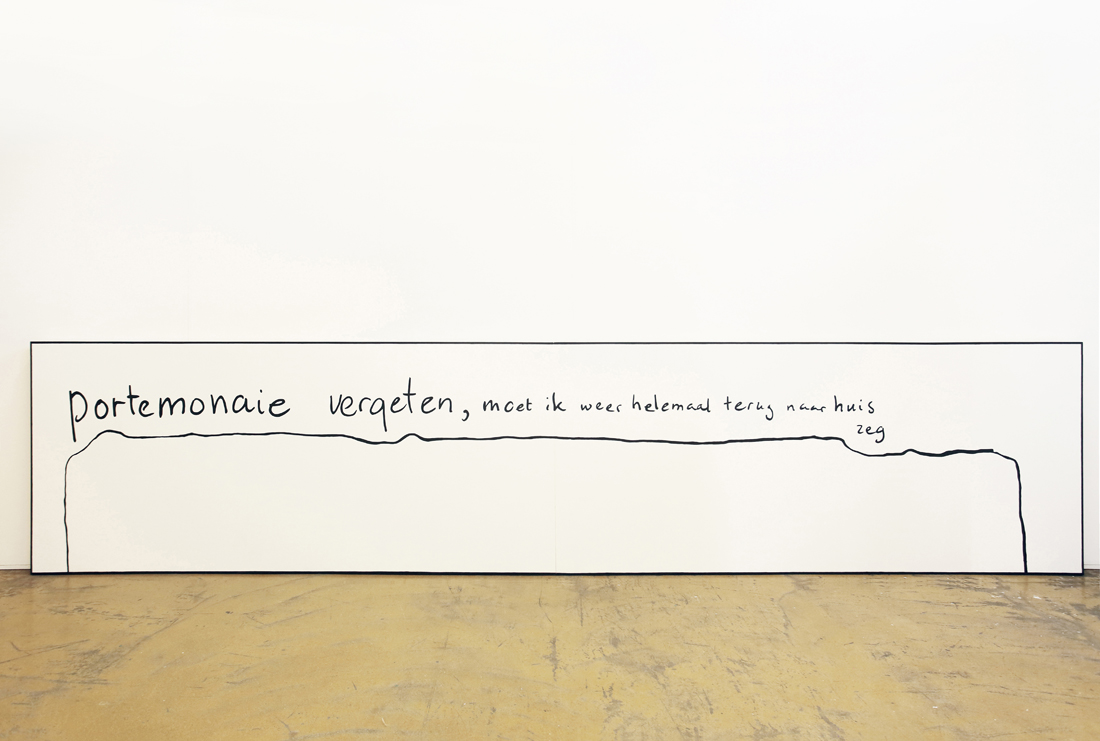 portemonaie vergeten, moet ik weer helemaal terug naar huis
zeg